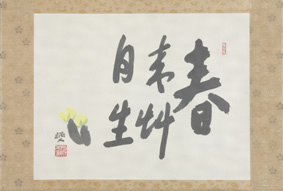 春
来艸
自生